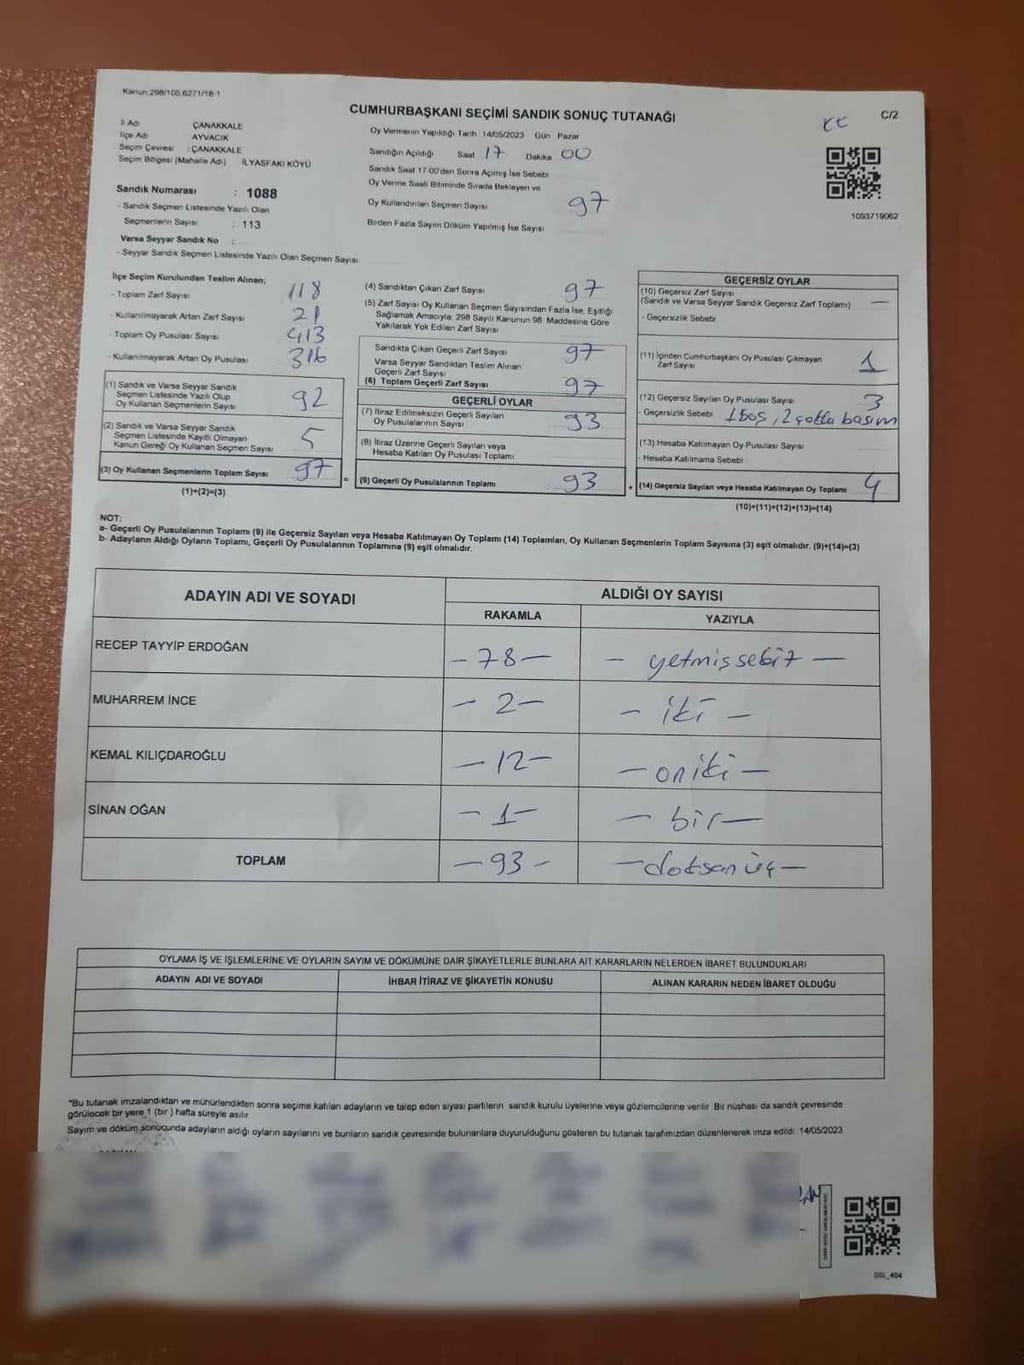 Kanun:298/105,6271/18-1
CUMHURBAŞKANI SEÇİMİ SANDIK SONUÇ TUTANAĞI
C/2
İl Adı ÇANAKKALE
İlçe Adı AYVACIK
Seçim Çevresi : ÇANAKKALE
Seçim Bölgesi (Mahalle Adı) İLYASFAKI KÖYÜ
Sandık Numarası : 1088
- Sandık Seçmen Listesinde Yazılı Olan
Seçmenlerin Sayısı : 113
Varsa Seyyar Sandık No :
- Seyyar Sandık Seçmen Listesinde Yazılı Olan Seçmen Sayısı
Oy Vermenin Yapıldığı Tarih 14/05/2023 Gün Pazar
Sandığın Açıldığı Saat 17 Dakika 00
Sandık Saat 17:00'den Sonra Açımış İse Sebebi
Oy Verme Saati Bitiminde Sırada Bekleyen ve
Oy Kullandırılan Seçmen Sayısı 97
Birden Fazla Sayım Döküm Yapılmış İse Sayısı
1093719062
İlçe Seçim Kurulundan Teslim Alınan;
- Toplam Zarf Sayısı 118
- Kullanılmayarak Artan Zarf Sayısı 21
- Toplam Oy Pusulası Sayısı 413
- Kullanılmayarak Artan Oy Pusulası 316
(1) Sandık ve Varsa Seyyar Sandık
Seçmen Listesinde Yazılı Olup
Oy Kullanan Seçmenlerin Sayısı 92
(2) Sandık ve Varsa Seyyar Sandık
Seçmen Listesinde Kayıtlı Olmayan
Kanun Gereği Oy Kullanan Seçmen Sayısı 5
(3) Oy Kullanan Seçmenlerin Toplam Sayısı 97
(1)+(2)=(3)
(4) Sandıktan Çıkan Zarf Sayısı 97
(5) Zarf Sayısı Oy Kullanan Seçmen Sayısından Fazla İse, Eşitliği
Sağlamak Amacıyla, 298 Sayılı Kanunun 98. Maddesine Göre
Yakılarak Yok Edilen Zarf Sayısı
Sandıkta Çıkan Geçerli Zarf Sayısı 97
Varsa Seyyar Sandıktan Teslim Alınan
Geçerli Zarf Sayısı
(6) Toplam Geçerli Zarf Sayısı 97
GEÇERLİ OYLAR
(7) İtiraz Edilmeksizin Geçerli Sayılan
Oy Pusulalarının Sayısı 93
(8) İtiraz Üzerine Geçerli Sayılan veya
Hesaba Katılan Oy Pusulası Toplamı
(9) Geçerli Oy Pusulalarının Toplamı 93
GEÇERSİZ OYLAR
(10) Geçersiz Zarf Sayısı
(Sandık ve Varsa Seyyar Sandık Geçersiz Zarf Toplamı) —
- Geçersizlik Sebebi
(11) İçinden Cumhurbaşkanı Oy Pusulası Çıkmayan
Zarf Sayısı 1
(12) Geçersiz Sayılan Oy Pusulası Sayısı 3
- Geçersizlik Sebebi 1 boş, 2 çoklu basım
(13) Hesaba Katılmayan Oy Pusulası Sayısı
- Hesaba Katılmama Sebebi
+ (14) Geçersiz Sayılan veya Hesaba Katılmayan Oy Toplamı 4
(10)+(11)+(12)+(13)=(14)
NOT:
a- Geçerli Oy Pusulalarının Toplamı (9) ile Geçersiz Sayılan veya Hesaba Katılmayan Oy Toplamı (14) Toplamları, Oy Kullanan Seçmenlerin Toplam Sayısına (3) eşit olmalıdır. (9)+(14)=(3)
b- Adayların Aldığı Oyların Toplamı, Geçerli Oy Pusulalarının Toplamına (9) eşit olmalıdır.
ADAYIN ADI VE SOYADI ALDIĞI OY SAYISI
RAKAMLA YAZIYLA
RECEP TAYYİP ERDOĞAN – 78 – – yetmiş sekiz –
MUHARREM İNCE – 2 – – iki –
KEMAL KILIÇDAROĞLU – 12 – – oniki –
SİNAN OĞAN – 1 – – bir –
TOPLAM – 93 – – doksan üç –
OYLAMA İŞ VE İŞLEMLERİNE VE OYLARIN SAYIM VE DÖKÜMÜNE DAİR ŞİKAYETLERLE BUNLARA AİT KARARLARIN NELERDEN İBARET BULUNDUKLARI
ADAYIN ADI VE SOYADI İHBAR İTİRAZ VE ŞİKAYETİN KONUSU ALINAN KARARIN NEDEN İBARET OLDUĞU
*Bu tutanak imzalandıktan ve mühürlendikten sonra seçime katılan adayların ve talep eden siyasi partilerin sandık kurulu üyelerine veya gözlemcilerine verilir. Bir nüshası da sandık çevresinde
görülecek bir yere 1 (bir) hafta süreyle asılır
Sayım ve döküm sonucunda adayların aldığı oyların sayılarını ve bunların sandık çevresinde bulunanlara duyurulduğunu gösteren bu tutanak tarafımızdan düzenlenerek imza edildi. 14/05/2023